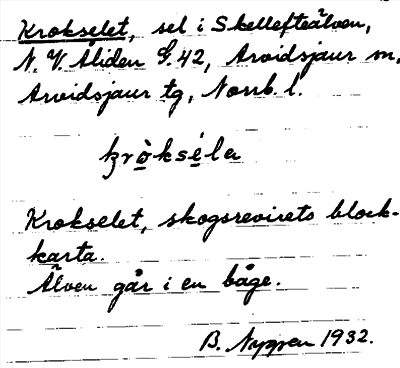 Krokselet, sel i Skellefteälven,
N. V. Åliden G. 42, Arvidsjaur sn,
Arvidsjaur tg, Norrb. l.
Krokselet, skogsrevirets block-
karta.
Älven går i en båge.
B. Nygren 1932.